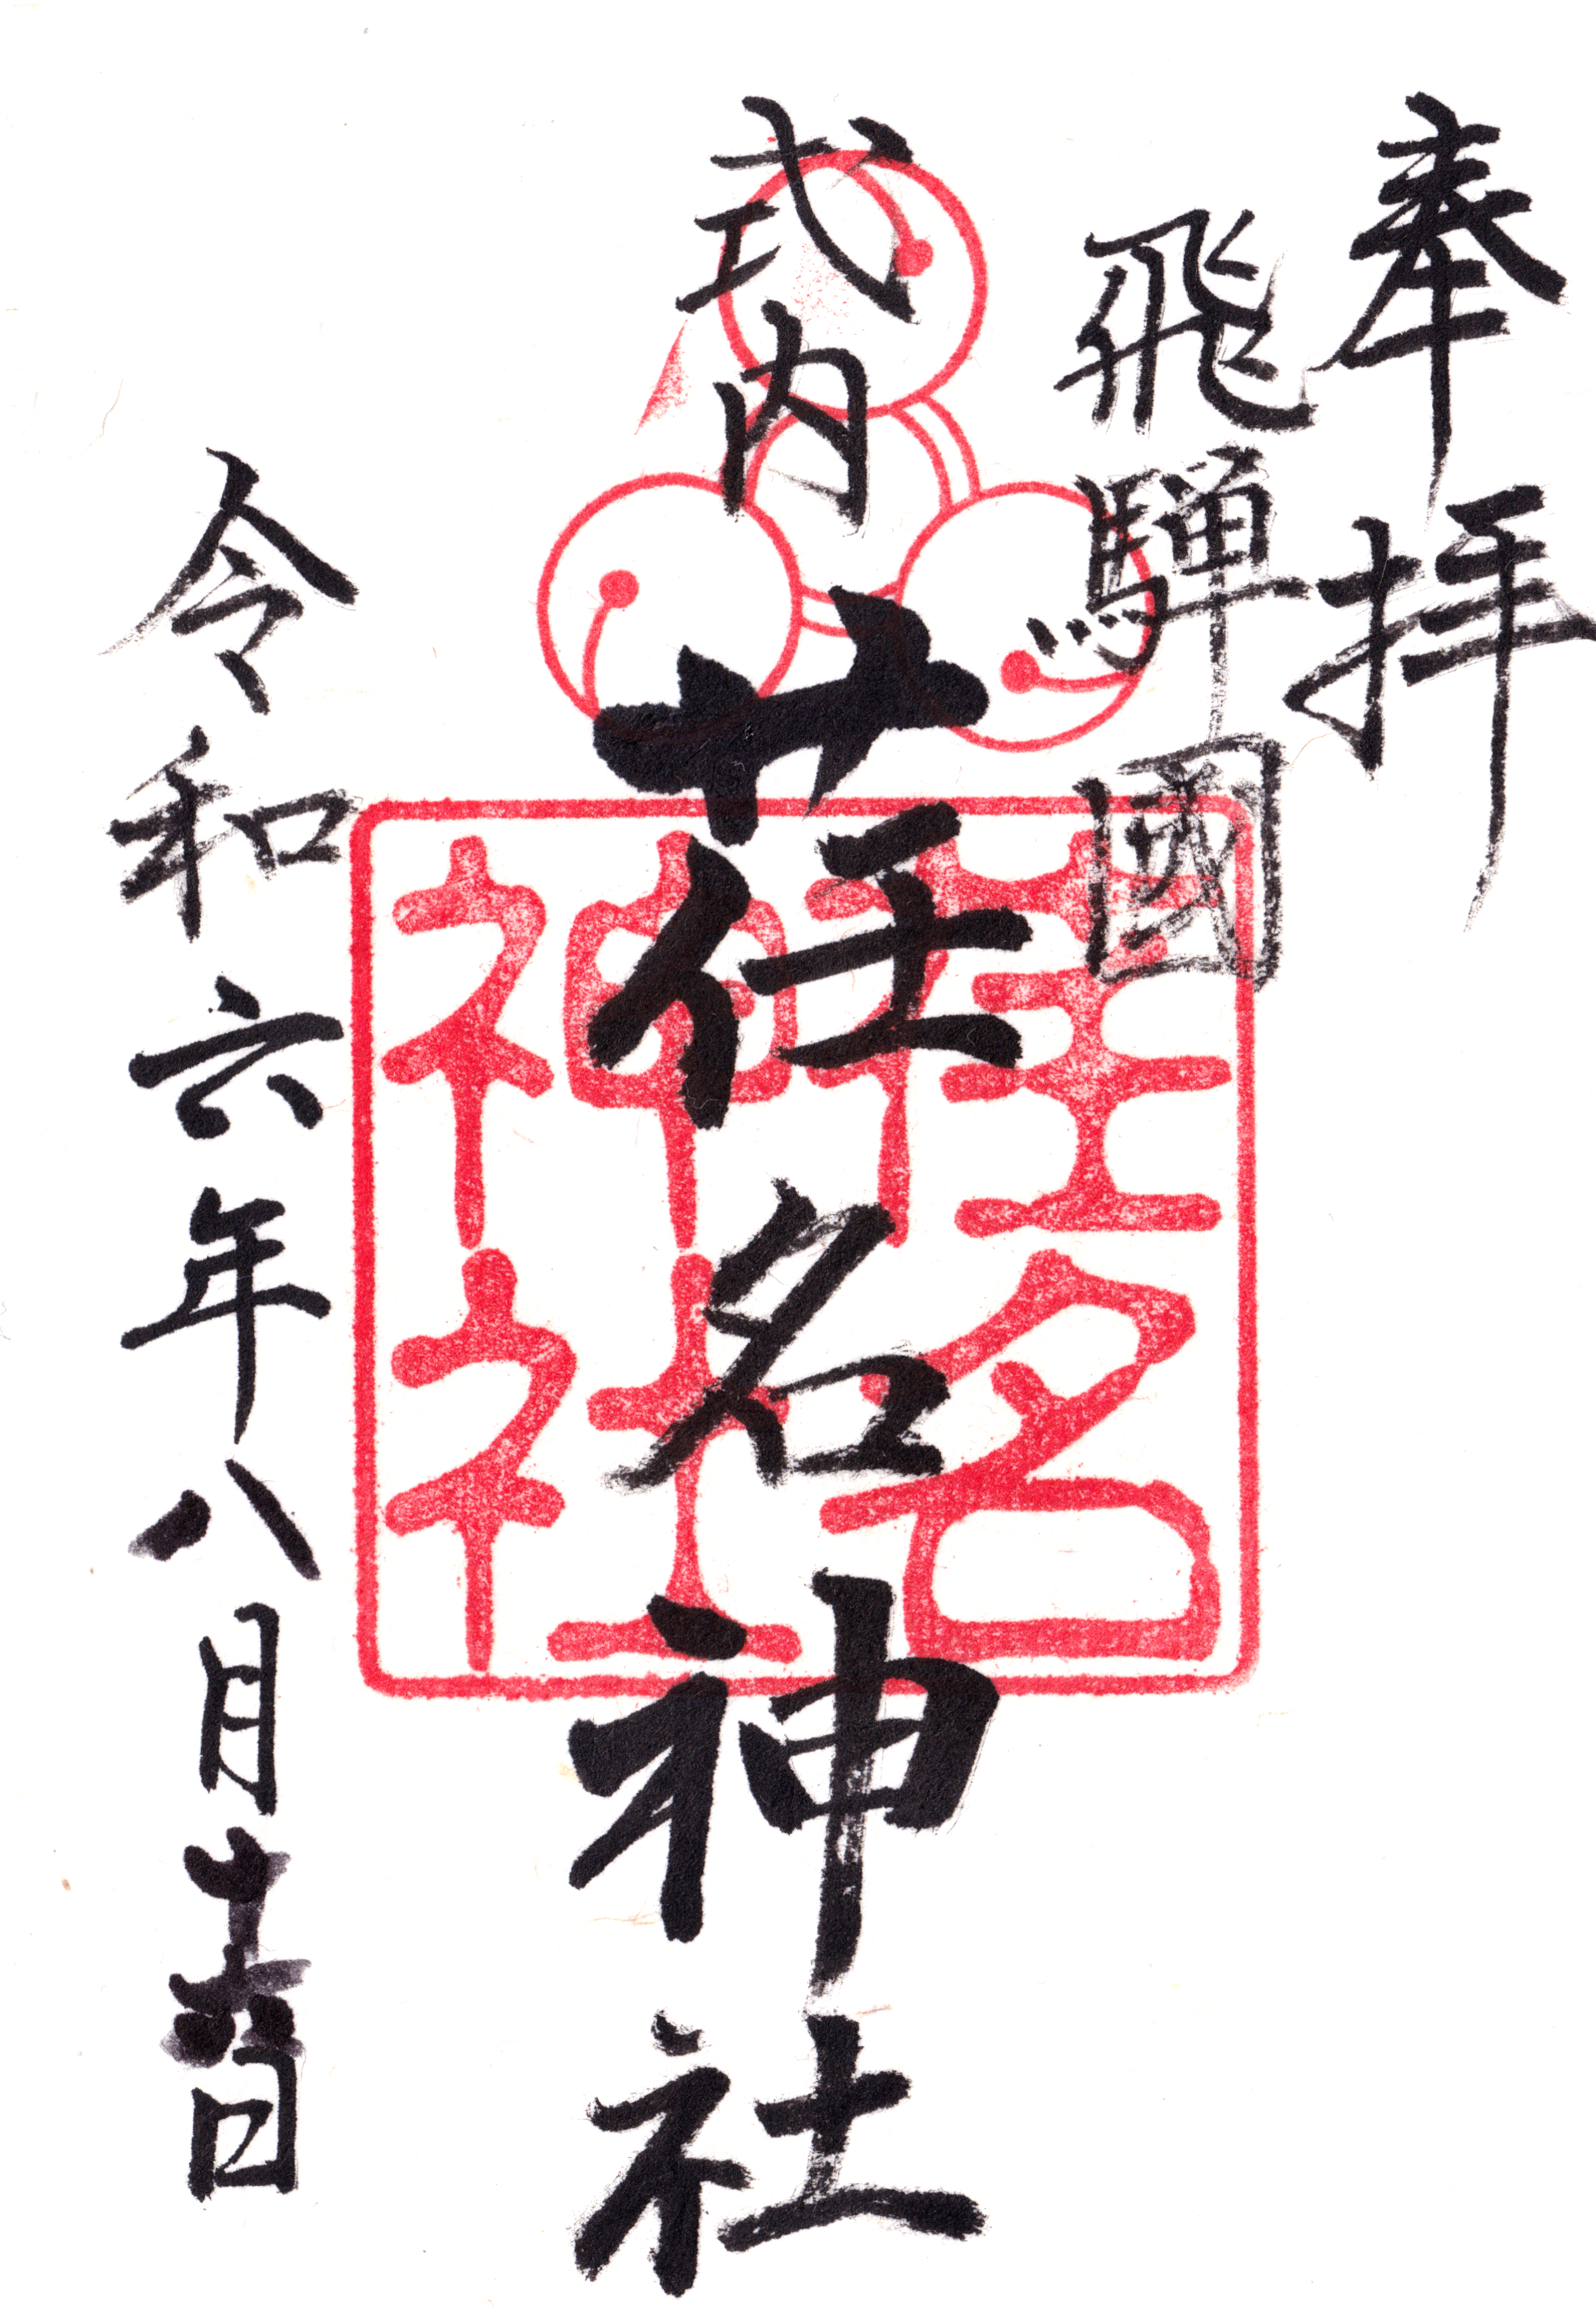 奉拝
飛騨國
式内
荏名神社
令和六年八月十六日
荏名
神社